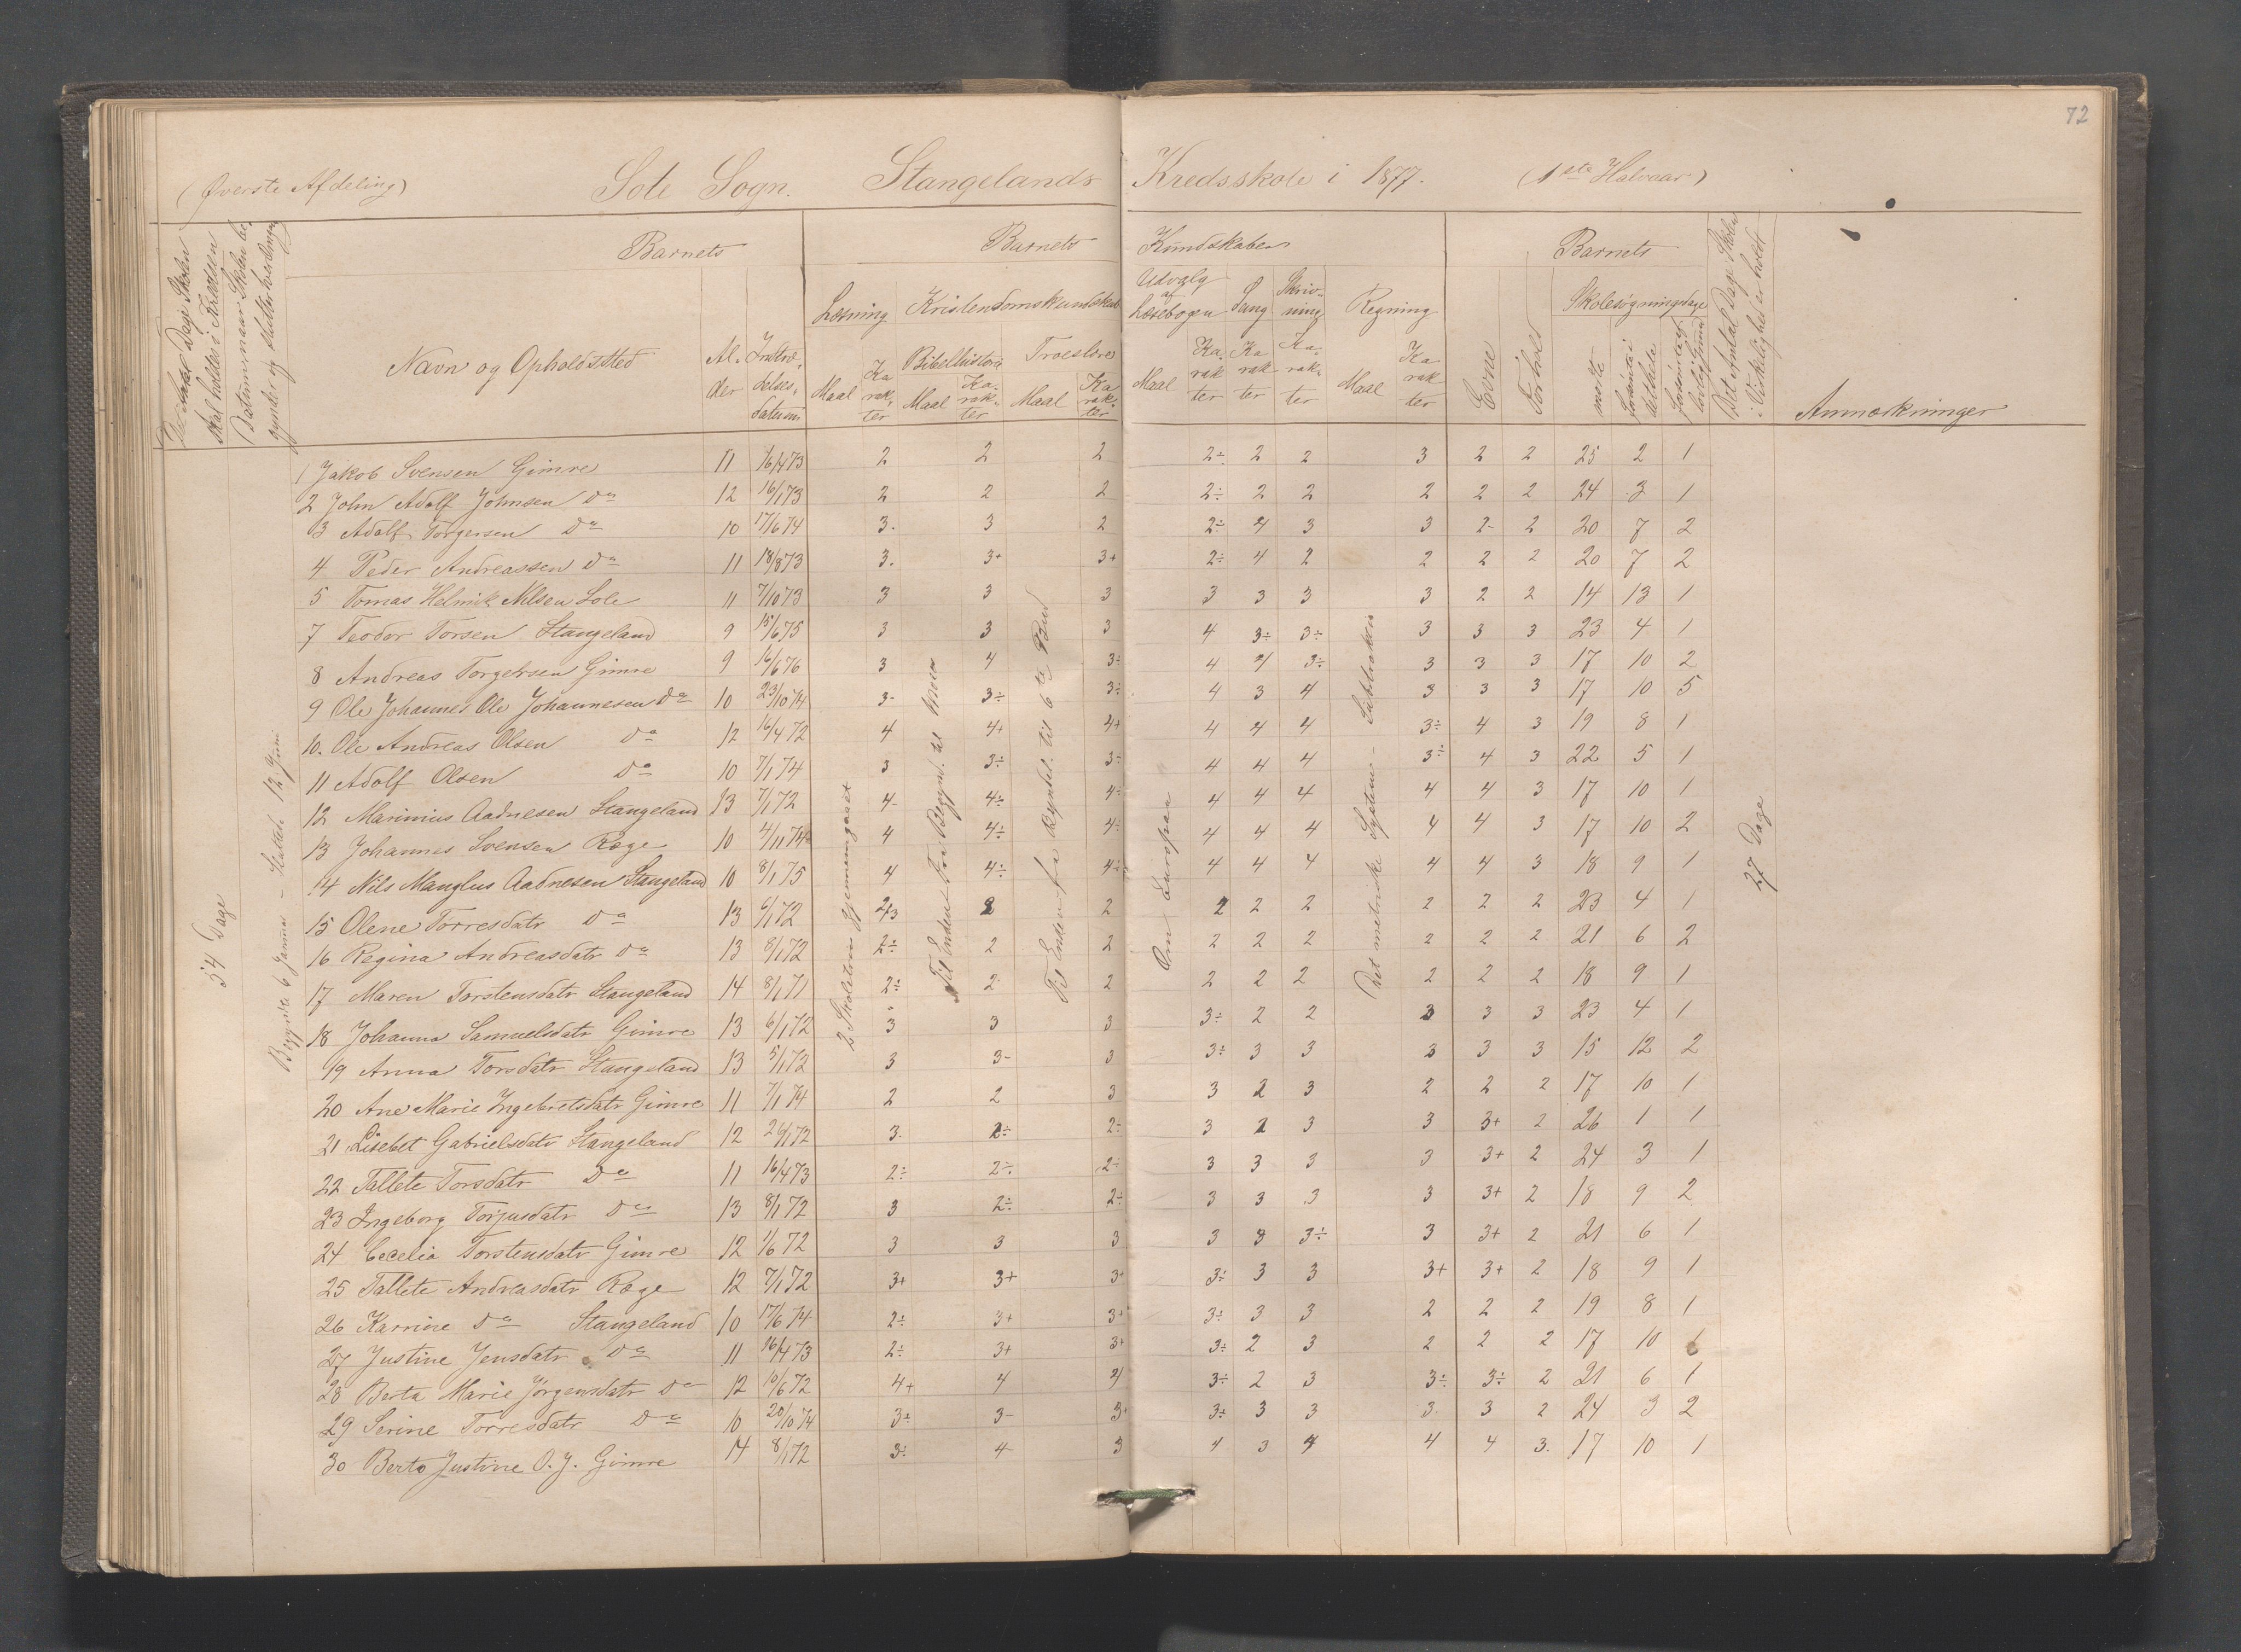 72
(Øverste Afdeling) Sole Sogn. Stangelands Kredsskole i 1877. (1ste Halvaar)
Barnets Barnets Kundskaber Barnets
Det Antal Dage Skolen skal holdes i Kredsen
Datum, naar Skolen begynder og slutter hver Gang
Navn og Opholdssted
Alder
Indtrædelsesdatum
Læsning Kristendomskundskab
Maal Karakter
Bibelhistorie Maal Karakter
Troeslære Maal Karakter
Udvalg af Læsebogen Maal Karakter
Sang Karakter
Skrivning Karakter
Regning Maal Karakter
Evne
Forhold
Skolesøgningsdage
mødte
forsømte i det hele
forsømte af lovligt
Det Antal Dage Skolen i Virkelighed er holdt
Anmærkninger
54 Dage
Begyndte 6 Januar – Sluttede 12 Juni
2 Skoletrin gjennemgaaet
Til Enden fra Begynd. til Moses
Til Enden fra Begyndel. til 6te Bud
Om Europa
Det metriske System – Subtraktion
27 Dage
1 Jakob Svensen Gimre 11 16/4 73 2 2 2 2÷ 2 2 3 2 2 25 2 1
2 John Adolf Johnsen do 12 16/1 73 2 2 2 2÷ 2 2 2 2 2 24 3 1
3 Adolf Torgersen do 10 17/6 74 3- 3 2 2÷ 4 3 3 2- 2 20 7 2
4 Peder Andreassen do 11 18/8 73 3. 3+ 3+ 2÷ 4 2 2 2 2 20 7 2
5 Tomas Helmik Nilsen Sole 11 7/10 73 3 3 3 3 3 3 3 2 2 14 13 1
7 Teodor Torsen Stangeland 9 15/6 75 3 3 3 4 3÷ 3÷ 3 3 3 23 4 1
8 Andreas Torgersen Gimre 9 16/6 76 3 4 3÷ 4 4 3÷ 3 3 3 17 10 2
9 Ole Johannes Ole Johannesen do 10 23/10 74 3- 3÷ 3÷ 4 3 4 3 3 3 17 10 5
10. Ole Andreas Olsen do 12 16/4 72 4 4+ 4+ 4 4 4 3÷ 4 3 19 8 1
11 Adolf Olsen do 10 7/1 74 3 3÷ 3÷ 4 4 4 3÷ 4 3 22 5 1
12 Marinius Aadnesen Stangeland 13 7/1 72 4- 4÷ 4÷ 4 4 4 4 4 3 17 10 1
13 Johannes Svensen Ræge 10 4/11 74 4 4÷ 4÷ 4 4 4 4 4 3 17 10 2
14 Nils Manglus Aadnesen Stangeland 10 8/1 75 4 4÷ 4÷ 4 4 4 4 4 3 18 9 1
15 Olene Torresdatr do 13 6/1 72 2/3 2 2 2 2 2 2 2 2 23 4 1
16 Regina Andreasdatr do 13 8/1 72 2÷ 2 2 2 2 2 2 2 2 21 6 2
17 Maren Torstensdatr Stangeland 14 8/1 71 2÷ 2 2 2 2 2 2 2 2 18 9 1
18 Johanna Samuelsdatr Gimre 13 6/1 72 3 3 3 3÷ 2 2 3 3 3 23 4 1
19 Anna Torsdatr Stangeland 13 5/1 72 3 3- 3 3÷ 3 3 3 3 3 15 12 2
20 Ane Marie Ingebretsdatr Gimre 11 7/1 74 2 2 3 3 2 3 2 2 2 17 10 1
21 Lisebet Gabrielsdatr Stangeland 12 26/1 72 3- 2÷ 2÷ 3 2 3 3 3+ 2 26 1 1
22 Tallete Torsdatr do 11 16/4 73 2÷ 2÷ 2÷ 3 3 3 3 3+ 2 24 3 1
23 Ingeborg Torjusdatr do 13 8/1 72 3 2÷ 2÷ 3 3 3 3 3+ 2 18 9 2
24 Cecelia Torstensdatr Gimre 12 1/6 72 3 3 3 3 3 3÷ 3 3+ 2 21 6 1
25 Tallete Andreasdatr Ræge 12 7/1 72 3+ 3+ 3+ 3÷ 3 3 3+ 3+ 2 18 9 1
26 Karrine do Stangeland 10 17/6 74 2÷ 3+ 3+ 3÷ 3 3 2 2 2 19 8 1
27 Justine Jensdatr do 11 16/4 73 2÷ 3+ 3+ 3÷ 2 3 2 2 2 17 10 1
28 Berta Marie Jørgensdatr do 12 10/6 72 4+ 4 4 3÷ 2 3 3÷ 3÷ 2 21 6 1
29 Serine Torresdatr do 10 20/10 74 3÷ 3- 3+ 3÷ 3 3 3 3 2 24 3 2
30 Berta Justine O. J. Gimre 14 8/1 72 3÷ 4 3 4 3 4 4 4 3. 17 10 1